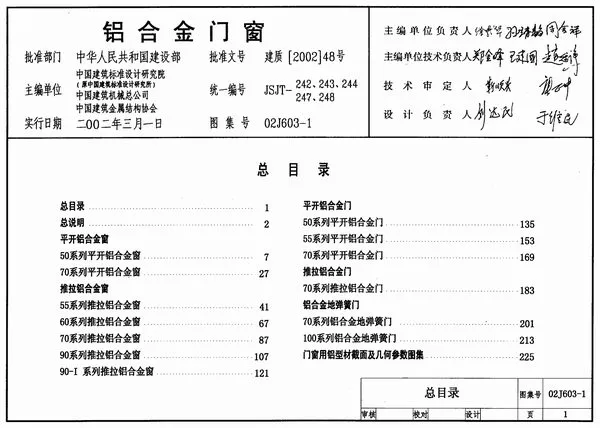 铝合金门窗
批准部门 中华人民共和国建设部 批准文号 建质[2002]48号
主编单位 中国建筑标准设计研究院
(原中国建筑标准设计研究所)
中国建筑机械总公司
中国建筑金属结构协会
统一编号 JSJT-242、243、244
247、248
实行日期 二〇〇二年三月一日 图集号 02J603-1
主编单位负责人
主编单位技术负责人
技术审定人
设计负责人
总目录
总目录 1
总说明 2
平开铝合金窗
50系列平开铝合金窗 7
70系列平开铝合金窗 27
推拉铝合金窗
55系列推拉铝合金窗 41
60系列推拉铝合金窗 67
70系列推拉铝合金窗 87
90系列推拉铝合金窗 107
90-I 系列推拉铝合金窗 121
平开铝合金门
50系列平开铝合金门 135
55系列平开铝合金门 153
70系列平开铝合金门 169
推拉铝合金门
70系列推拉铝合金门 183
铝合金地弹簧门
70系列铝合金地弹簧门 201
100系列铝合金地弹簧门 213
门窗用铝型材截面及几何参数图集 225
总目录 图集号 02J603-1
审核 校对 设计 页 1